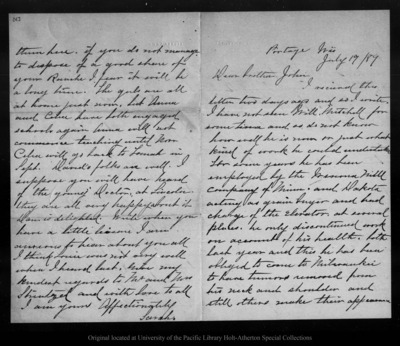 Portage Wis
July 19/89
Dear brother John,
I received this
letter two days ago and as I write
I have not seen Will Mitchell for
some time and as do not know
how well he is now or just what
kind of work he could undertake
for some years he has been
employed by the
company of Minn; and Dakota
acting as grain buyer and had
charge of the Elevator at several
places. he only discontinued work
on account of his health. for
last year and this he has been
obliged to come to Milwaukee
to have tumors removed from
his neck and shoulder and
still others make their appearance
them here. if you do not manage
to dispose of a good share of
your Ranche I fear it will be
a long time. The girls are all
at home just now, but Anna
and Celia have both engaged
schools again Anna will not
commence teaching until Nov
Celia will go back to in
Sept. David's folks are well. I
suppose you will have heard
of the young at Lincoln
they are all very happy about it
Dan is delighted. Write when you
have a little leisure I am
anxious to hear about you all
I think was not very well
when I heard last. Give my
kindest regards to Mr and Mrs
Strentzel and with love to all
I am yours Affectionately
Sarah
Original located at University of the Pacific Library Holt-Atherton Special Collections